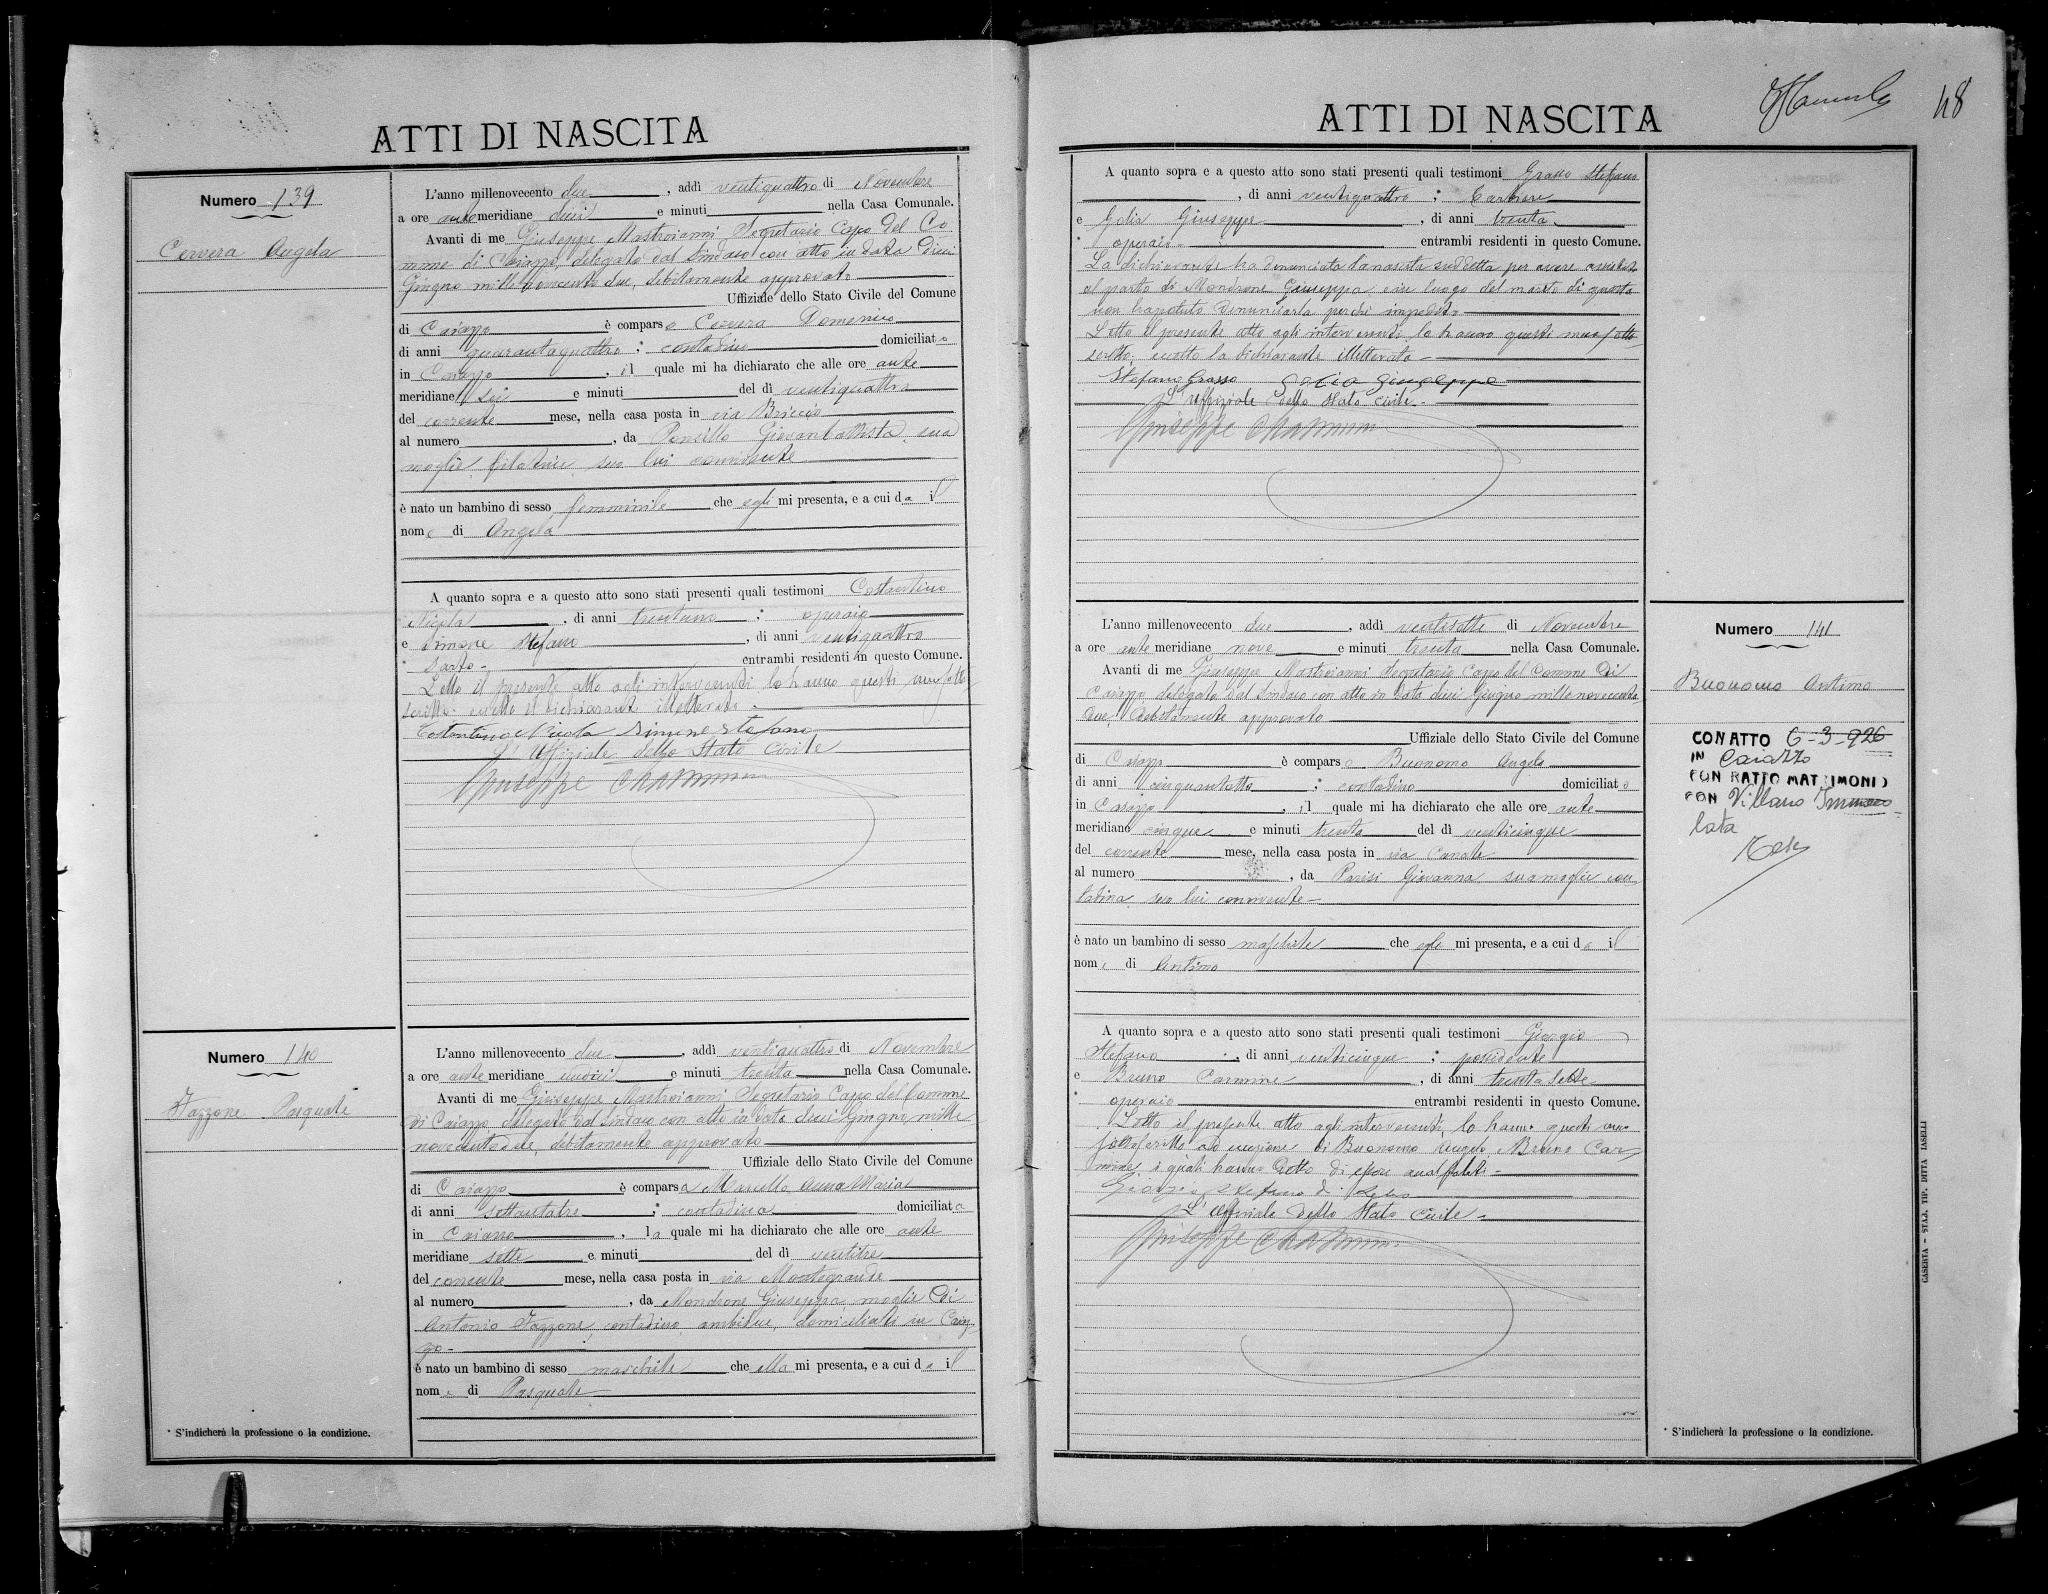 ATTI DI NASCITA
Numero 139
Cervera Angela
L'anno millenovecento due, addì ventiquattro di Novembre
a ore ante meridiane dieci e minuti nella Casa Comunale.
Avanti di me Giuseppe Mastroianni Segretario Capo del Co
mune di Caiazzo, delegato dal Sindaco con atto in data dieci
Giugno millenovecento due, debitamente approvato
Uffiziale dello Stato Civile del Comune
di Caiazzo è comparso Cervera Domenico
di anni quarantaquattro; contadino domiciliato
in Caiazzo, il quale mi ha dichiarato che alle ore ante
meridiane sei e minuti del dì ventiquattro
del corrente mese, nella casa posta in via Briccio
al numero, da Ponsillo Giovanbattista, sua
moglie filatrice seco lui convivente
è nato un bambino di sesso femminile che egli mi presenta, e a cui da il
nome di Angela
A quanto sopra e a questo atto sono stati presenti quali testimoni Costantino
Nicola, di anni trentuno; operaio
e Simone Stefano, di anni ventiquattro
* sarto entrambi residenti in questo Comune.
Letto il presente atto agli intervenuti lo hanno questi meco sotto
scritto, eccetto il dichiarante illetterato.
Costantino Nicola Simone Stefano
L'Uffiziale dello Stato Civile
Giuseppe
Numero 140
Fazzone Pasquale
L'anno millenovecento due, addì ventiquattro di Novembre
a ore ante meridiane undici e minuti trenta nella Casa Comunale.
Avanti di me Giuseppe Mastroianni Segretario Capo del Comune
di Caiazzo delegato dal Sindaco con atto in data dieci Giugno mille
novecentodue, debitamente approvato
Uffiziale dello Stato Civile del Comune
di Caiazzo è comparsa Marcello Anna Maria
di anni settantatre; contadina domiciliata
in Caiazzo, la quale mi ha dichiarato che alle ore ante
meridiane sette e minuti del dì ventitre
del corrente mese, nella casa posta in via Montegrande
al numero, da Mondrone Giuseppa moglie di
Antonio Fazzone, contadino, ambidue, domiciliati in Caiaz
zo
è nato un bambino di sesso maschile che ella mi presenta, e a cui da il
nome di Pasquale
* S'indicherà la professione o la condizione.
48
ATTI DI NASCITA
A quanto sopra e a questo atto sono stati presenti quali testimoni Grasso Stefano
, di anni ventiquattro; barbiere
e Golia Giuseppe, di anni trenta
* operaio entrambi residenti in questo Comune.
La dichiarante ha denunciata la nascita suddetta per avere assistito
al parto di Mondrone Giuseppa, e in luogo del marito di questa
non ha potuto denunciarla perchè impedito
Letto il presente atto agli intervenuti, lo hanno questi meco sotto
scritto, eccetto la dichiarante illetterata
Stefano Grasso Golia Giuseppe
L'Uffiziale dello Stato Civile
Giuseppe
Numero 141
Buonomo Antimo
CON ATTO 6-3-926
IN Caiazzo
CONTRATTO MATRIMONIO
CON Villano Immaco
lata
L'anno millenovecento due, addì ventisette di Novembre
a ore ante meridiane nove e minuti trenta nella Casa Comunale.
Avanti di me Giuseppe Mastroianni Segretario Capo del Comune di
Caiazzo, delegato dal Sindaco con atto in data dieci Giugno millenovecento
due, debitamente approvato
Uffiziale dello Stato Civile del Comune
di Caiazzo è comparso Buonomo Angelo
di anni cinquantotto; contadino domiciliato
in Caiazzo, il quale mi ha dichiarato che alle ore ante
meridiane cinque e minuti trenta del dì venticinque
del corrente mese, nella casa posta in via
al numero, da Parisi Giovanna sua moglie con
tadina seco lui convivente
è nato un bambino di sesso maschile che egli mi presenta, e a cui da il
nome di Antimo
A quanto sopra e a questo atto sono stati presenti quali testimoni Giorgio
Stefano, di anni venticinque; possidente
e Bruno Carmine, di anni trentasette
* operaio entrambi residenti in questo Comune.
Letto il presente atto agli intervenuti, lo hanno questi meco
sottoscritto ad eccezione di Buonomo Angelo, Bruno Car
mine, i quali hanno detto di essere analfabeti
Giorgio Stefano di
L'Uffiziale dello Stato Civile
Giuseppe
* S'indicherà la professione o la condizione.
CASERTA - STAB. TIP. DITTA IASELLI